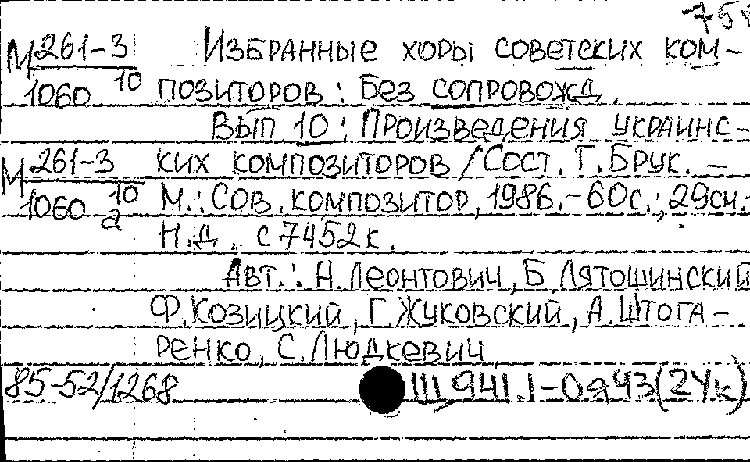 75
М 261-3 Избранные хоры советских ком-
1060 10 позиторов: Без сопровожд.
Вып 10: Произведения украинс-
М 261-3 ких композиторов / Сост. Г. Брук. –
1060 10а М.: Сов. композитор, 1986. – 60с.; 29см.
Н.д. с 7452 к.
Авт.: Н. Леонтович, Б. Лятошинский
Ф. Козицкий, Г. Жуковский, А. Штога-
ренко, С. Людкевич
85-52/1268 Ш 941.1-0я43(2Ук)